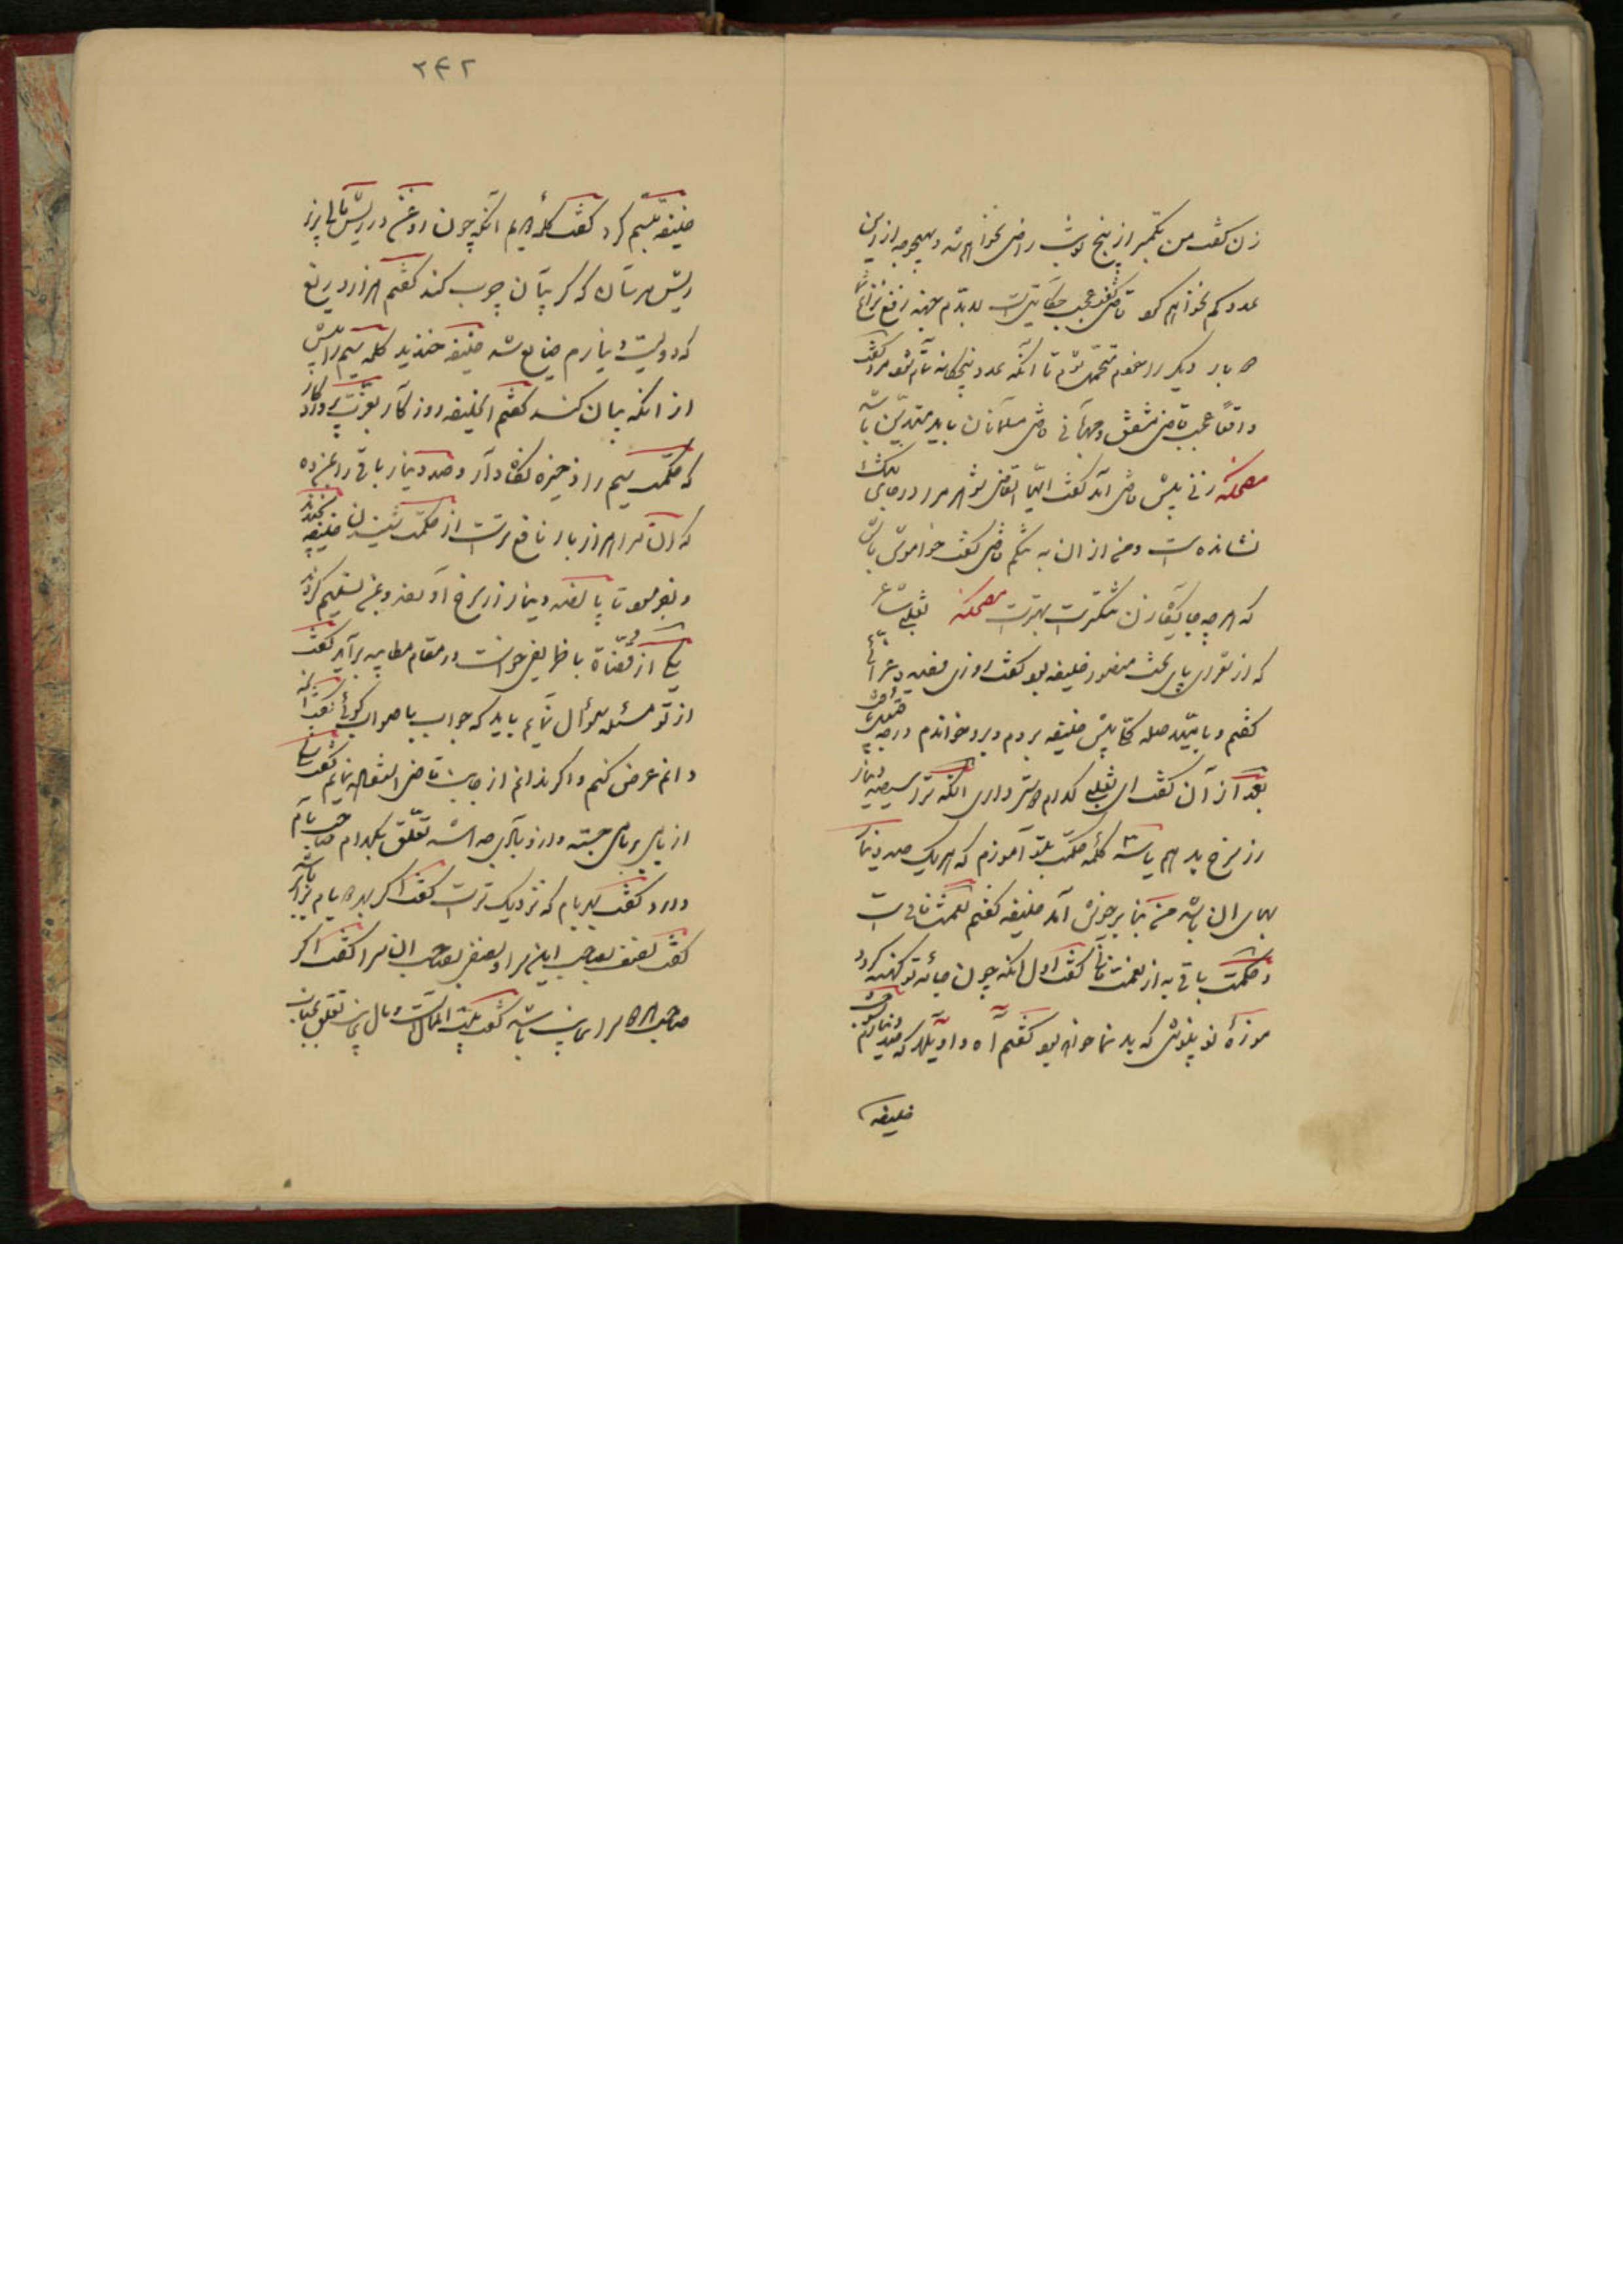 زن گفت من بکمتر از پنج نوبت راضی نخواهم شد و بهیچوجه از این
عدد کم نخواهم کرد قاضی گفت عجب حکایتی است لابدم جهة رفع نزاع شما
بار دیگر را خودم متحمل شوم تا آنکه عدد پنجگانه تمام شود مرد گفت
واقعاً عجب قاضی مشفق و مهربانی قاضی مسلمانان باید متدین باشد
مضحکه زنی پیش قاضی آمد گفت ایها القاضی شوهر مرا در جای تنگ
نشانده است و من از آن به تنگم قاضی گفت خواموش باش
که هر چه جایگاه زن تنگتر است بهتر است مضحکه ثعلبی شاعر
که از شعرای پای تخت منصور خلیفه بود گفت روزی قصیده غرائی
گفتم و بامید صله پیش خلیفه بردم و برو خواندم
بعد از آن گفت ای ثعلبی کدام دوستر داری آنکه ترا سیصد دینار
زر سرخ بدهم یا سه کلمه حکمت بتو آموزم که هر یک صد دینار
بهای آن باشد من بنا بر خوش آمد خلیفه گفتم نعمت فانی است
و حکمت باقی به از نعمت فانی گفت اول آنکه چون جامه تو کهنه گردد
موزهٔ نو مپوش که بدنما خواهد بود گفتم آه و واویلا که صد دینارم
خلیفه
۲۴۲
خلیفه تبسم کرد گفت کلمهٔ دویم آنکه چون روغن در ریش مالی بزیر
ریش مرسان که گریبان چرب کند گفتم هزار دریغ
که دویست دینارم ضایع شد خلیفه خندید کلمه سیم را پیش
از آنکه بیان کند گفتم ایخلیفه روزگار بعزت پروردگار
که حکمت سیم را ذخیره نگاه دار و صد دینار باقی را بمن ده
که آن مرا هزار بار نافع تر است از حکمت شنیدن خلیفه بخندید
و بفرمود تا پانصد دینار زر سرخ آوردند و بمن تسلیم کردند
یکی از قضاة با ظریفی خواست در مقام مطایبه برآید گفت
از تو مسئله سؤال نمایم باید که جواب با صواب گوئی گفت آنچه
دانم عرض کنم و اگر ندانم از جناب قاضی استفاده نمایم گفت
از بامی ببامی جسته و از او بادی جدا شد تعلق بکدام صاحب بام
دارد گفت بهر بام که نزدیکتر است گفت اگر بهر دو بام برابر باشد
گفت نصف بصاحب این سرا و نصف بصاحب آن سرا گفت اگر
صاحب هر دو سرا غایب باشد گفت بیت المال است و مال غایب تعلق بجناب